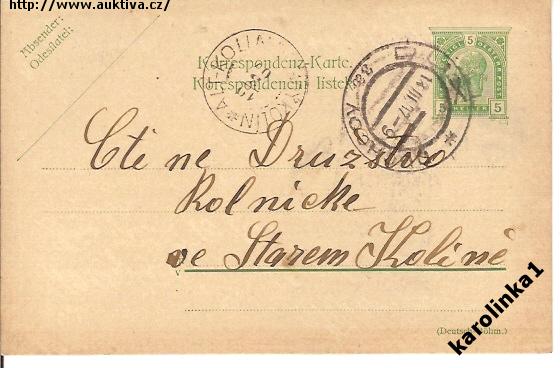 http://www.auktiva.cz/
Absender:
Odesílatel:
Korrespondenz-Karte.
Korespondenční lístek.
5
5 5
ALT-KOLIN
Cti ne Druzstvo
Rolnicke
ve Starem Kolině
(Deutsch-Böhm.)
karolinka1